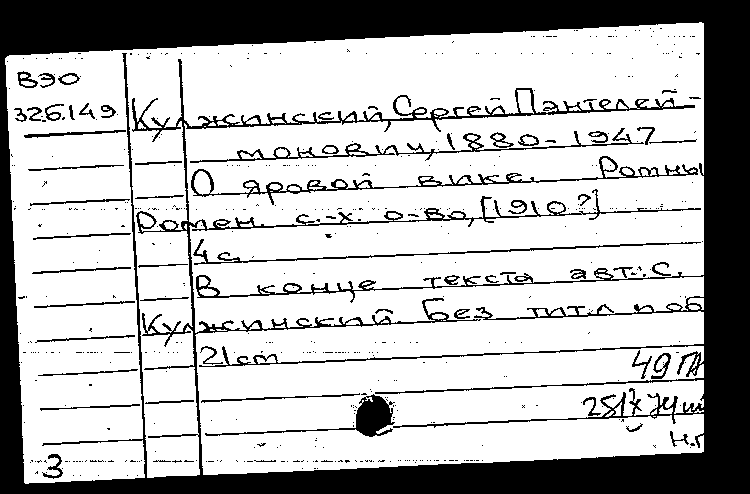 ВЭО
32б.149
Кулжинский, Сергей Пантелей-
монович, 1880-1947
О яровой вике. Ромны
Ромен. с.-х. о-во, [1910?]
4 с.
В конце текста авт.: С.
Кулжинский. Без тит. л и об
21 cm
49 ГА
Н.Г
3